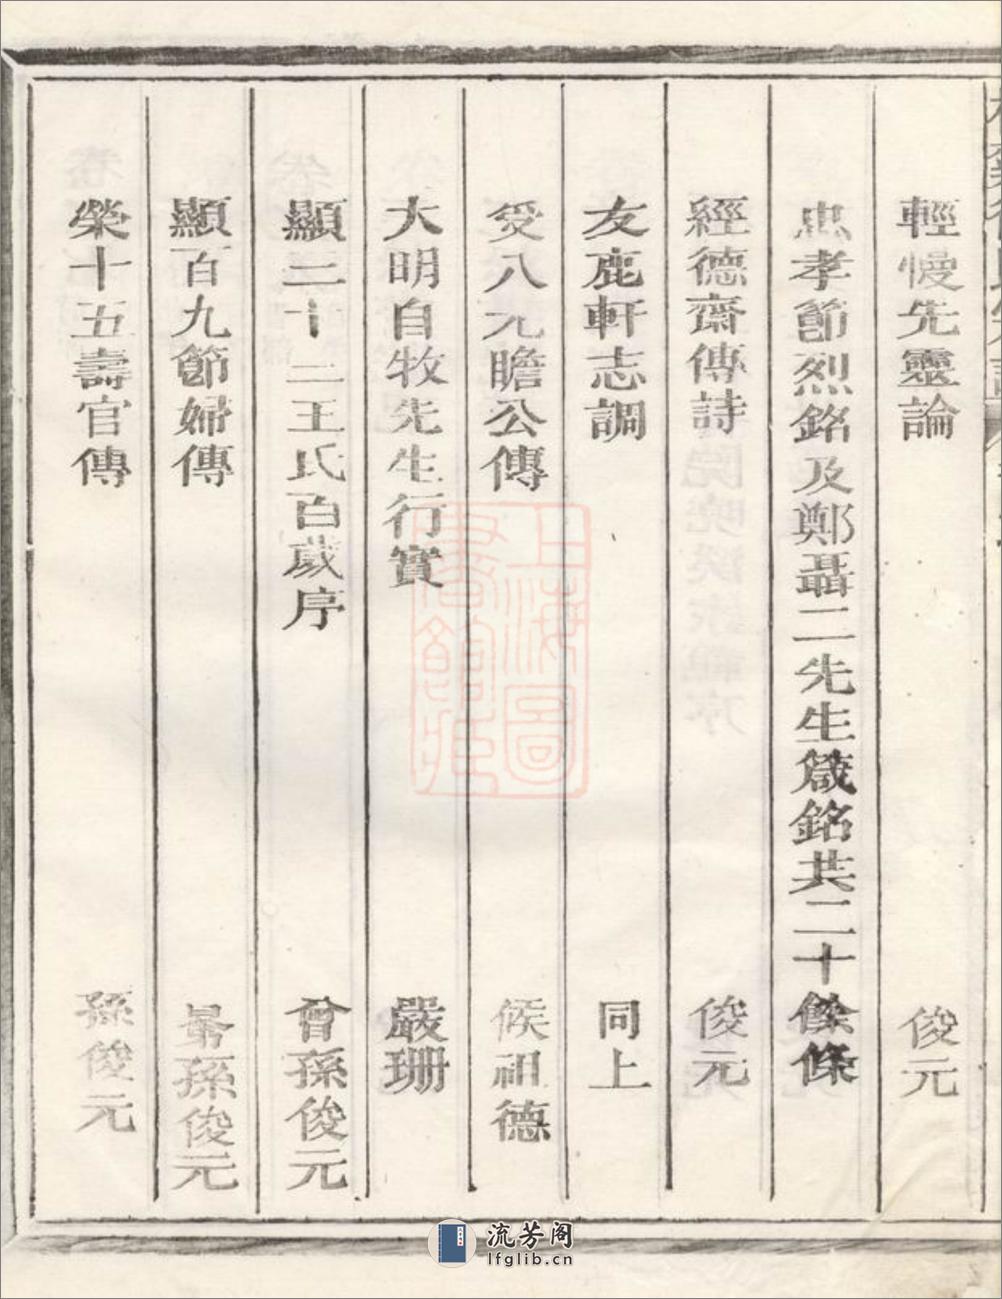 輕慢先靈論 俊元
忠孝節烈銘及鄭聶二先生箴銘共二十餘條
經德齋傳詩 俊元
友鹿軒志調 同上
受八九瞻公傳 候祖德
大明自牧先生行實 嚴珊
顯二十二王氏百歲序 曾孫俊元
顯百九節婦傳 孫俊元
榮十五壽官傳 孫俊元
上海圖書館藏
流芳阁
lfglib.cn